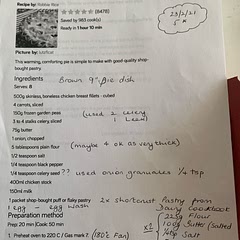 Recipe by: Robbie Rice
(6478)
Saved by 983 cook(s)
Ready in 1 hour 10 min
23/2/21
5 *
Picture by:
This warming, comforting pie is simple to make with good quality shop-
bought pastry.
Ingredients Brown 9" Pie dish
Serves: 8
500g skinless, boneless chicken breast fillets - cubed
4 carrots, sliced
150g frozen garden peas (used 2 celery
3 to 4 stalks celery, sliced 1 leek)
75g butter
1 onion, chopped
5 tablespoons plain flour (maybe 4 ok as very thick)
1/2 teaspoon salt
1/4 teaspoon black pepper
1/4 teaspoon celery seed ?? used onion granules 1/4 tsp
400ml chicken stock
150ml milk
1 packet shop-bought puff or flaky pastry 2x shortcrust Pastry from
1 egg - egg wash Dairy Cookbook
Preparation method (225g Flour
Prep: 20 min | Cook: 50 min x2 100g Butter/Salted
1. Preheat oven to 220 C / Gas mark 7. (180°c Fan) 1/2tsp Salt